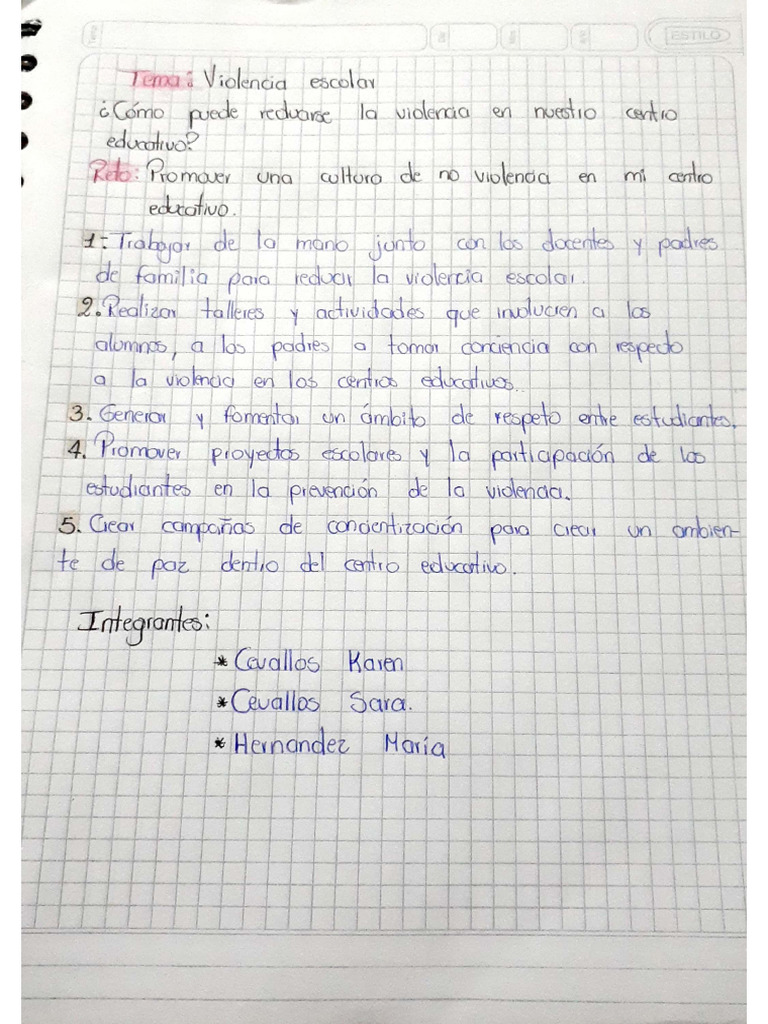 ESTILO
Tema: Violencia escolar
¿Cómo puede reducirse la violencia en nuestro centro
educativo?
Reto: Promover una cultura de no violencia en mi centro
educativo.
1.- Trabajar de la mano junto con los docentes y padres
de familia para reducir la violencia escolar.
2. Realizar talleres y actividades que involucren a los
alumnos, a los padres a tomar conciencia con respecto
a la violencia en los centros educativos..
3. Generar y fomentar un ámbito de respeto entre estudiantes.
4. Promover proyectos escolares y la participación de los
estudiantes en la prevención de la violencia.
5. Crear campañas de concientización para crear un ambien-
te de paz dentro del centro educativo.
Integrantes:
* Cevallos Karen
* Cevallos Sara.
* Hernandez María